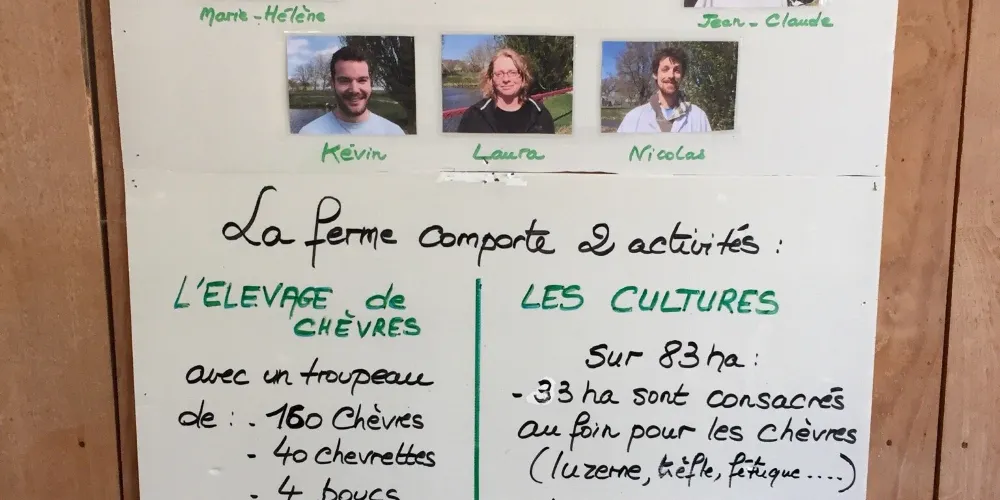 Marie-Hélène
Jean-Claude
Kévin
Laura
Nicolas
La ferme comporte 2 activités :
L'ELEVAGE de
CHÈVRES
avec un troupeau
de : . 160 Chèvres
- 40 chevrettes
- 4 boucs
LES CULTURES
sur 83 ha :
- 33 ha sont consacrés
au foin pour les chèvres
(luzerne, trèfle, fétuque ....)